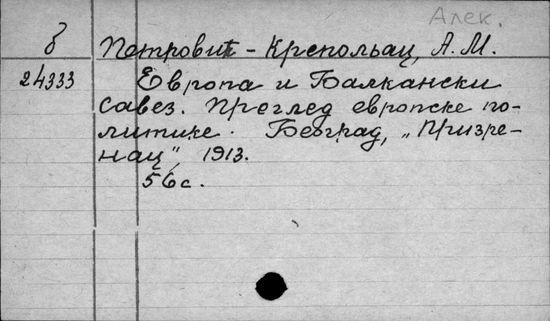 Алек.
б Петровић - Крепољац, А. М.
24333 Европа и Балкански
савез. Преглед европске по-
литике. Београд, „Призре-
нац“, 1913.
56 с.